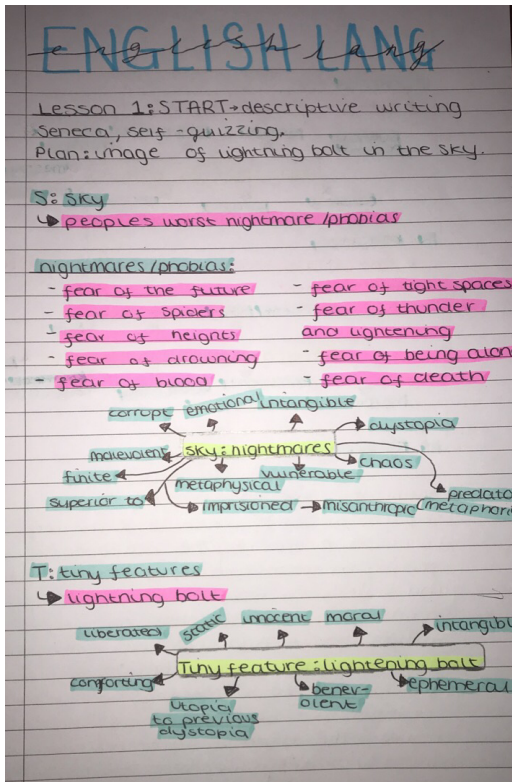 ENGLISH LANG
english lang
Lesson 1: START→descriptive writing
Seneca, self-quizzing.
Plan: image of lightning bolt in the sky.
S: sky
↳ peoples worst nightmare/phobias
nightmares/phobias:
- fear of the future
- fear of spiders
- fear of heights
- fear of drowning
- fear of blood
- fear of tight spaces
- fear of thunder
and lightening
- fear of being alon
- fear of death
corrupt emotional intangible
dystopia
malevolent sky: nightmares
chaos
finite metaphysical vulnerable
superior to imprisioned → misanthropic predato
(metaphor
T: tiny features
↳ lightning bolt
liberated static innocent moral intangibl
Tiny feature: lightening bolt
comforting utopia
to previous
dystopia
benev-
olent
ephemeral